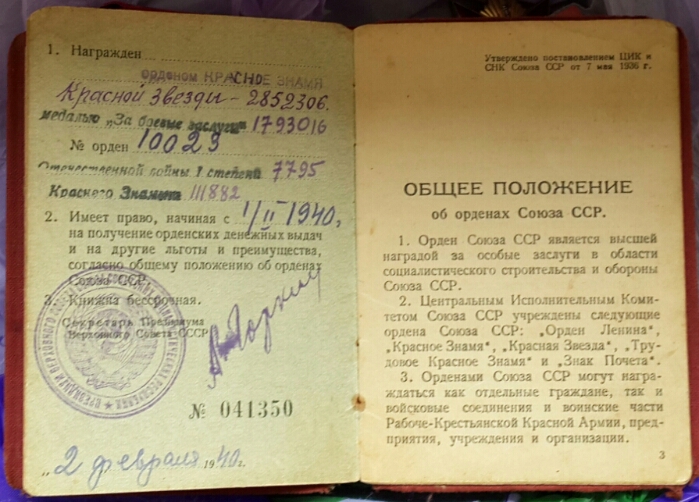 1. Награжден
орденом КРАСНОЕ ЗНАМЯ
Красной Звезды - 2852306.
медалью „За боевые заслуги“ 1793016
№ орден 10023
Отечественной войны I степени 7795
Красного Знамени 111882
2. Имеет право, начиная с 1/II 1940 г,
на получение орденских денежных выдач
и на другие льготы и преимущества,
согласно общему положению об орденах
Союза ССР.
3. Книжка бессрочная.
Секретарь Президиума
Верховного Совета СССР
А. Горкин
№ 041350
„2 февраля 1940 г.
Утверждено постановлением ЦИК и
СНК Союза ССР от 7 мая 1936 г.
ОБЩЕЕ ПОЛОЖЕНИЕ
об орденах Союза ССР.
1. Орден Союза ССР является высшей
наградой за особые заслуги в области
социалистического строительства и обороны
Союза ССР.
2. Центральным Исполнительным Коми-
тетом Союза ССР учреждены следующие
ордена Союза ССР: „Орден Ленина“,
„Красное Знамя“, „Красная Звезда“, „Тру-
довое Красное Знамя“ и „Знак Почета“.
3. Орденами Союза ССР могут награ-
ждаться как отдельные граждане, так и
войсковые соединения и воинские части
Рабоче-Крестьянской Красной Армии, пред-
приятия, учреждения и организации.
3